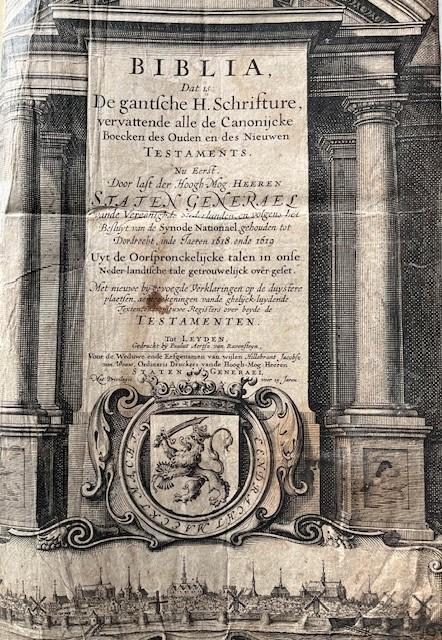 BIBLIA,
Dat is:
De gantsche H. Schrifture,
vervattende alle de Canonijcke
Boecken des Ouden en des Nieuwen
TESTAMENTS.
Nu Eerst,
Door last der Hoogh-Mog: HEEREN
STATEN GENERAEL
vande Vereenighde Nederlanden, en volgens het
Besluyt van de Synode Nationael gehouden tot
Dordrecht, inde Jaeren 1618 ende 1619
Uyt de Oorspronckelijcke talen in onse
Neder-landtsche tale getrouwelijck over-geset.
Met nieuwe by-gevoegde Verklaringen op de duystere
plaetsen, aenteekeningen vande ghelijck-luydende
Texten, ende nieuwe Registers over beyde de
TESTAMENTEN.
Tot LEYDEN,
Gedruckt by Paulus Aertsz van Ravensteyn,
Voor de Weduwe ende Erfgenamen van wijlen Hillebrant Jacobsz
van Wouw, Ordinaris Druckers vande Hoogh-Mog: Heeren
STATEN GENERAEL
Met Privilegie voor 15 Jaren
EENDRACHT MAECKT MACHT